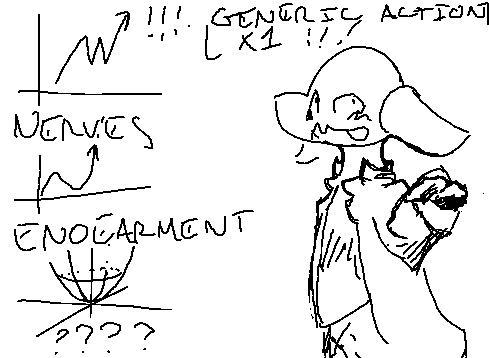 !!!!
GENERIC ACTION
X1 !!?
NERVES
ENDEARMENT
????